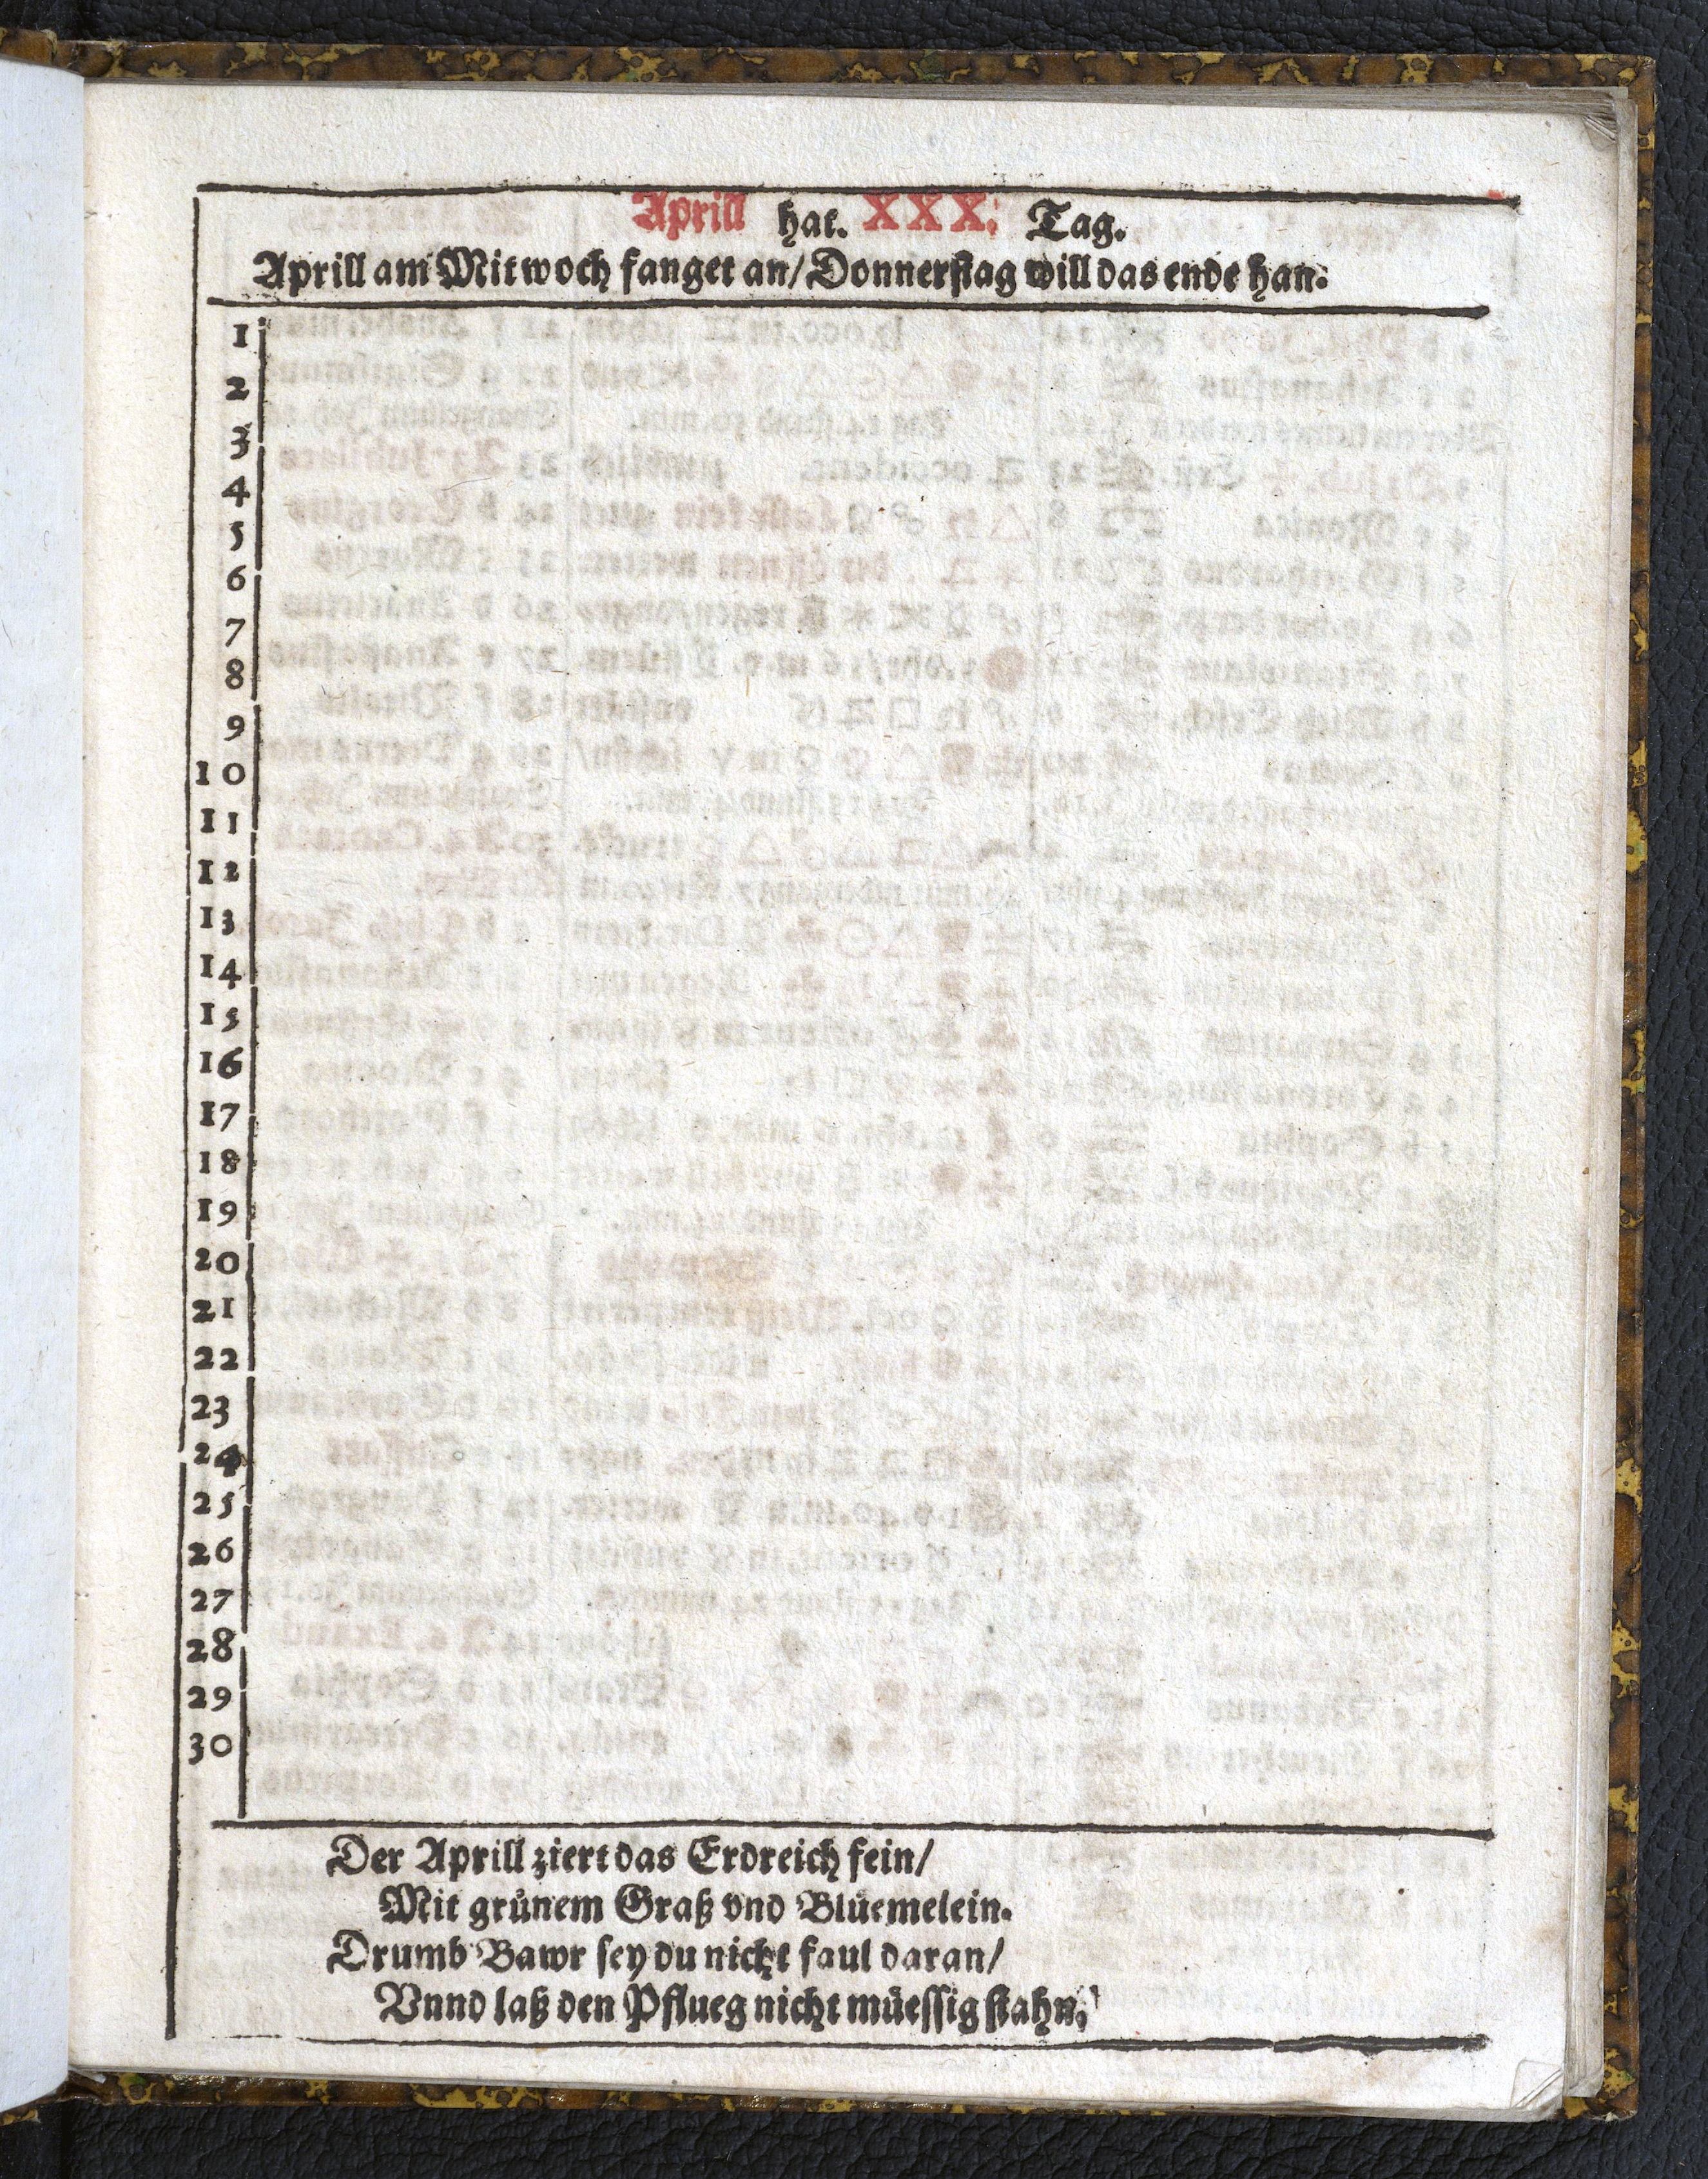 Aprill hat. XXX. Tag.
Aprill am Mitwoch fanget an/ Donnerstag will das ende han.
1
2
3
4
5
6
7
8
9
10
11
12
13
14
15
16
17
18
19
20
21
22
23
24
25
26
27
28
29
30
Der Aprill ziert das Erdreich fein/
Mit grünem Graß vnd Blüemelein.
Drumb Bawr sey du nicht faul daran/
Vnnd laß den Pflueg nicht müessig stahn.